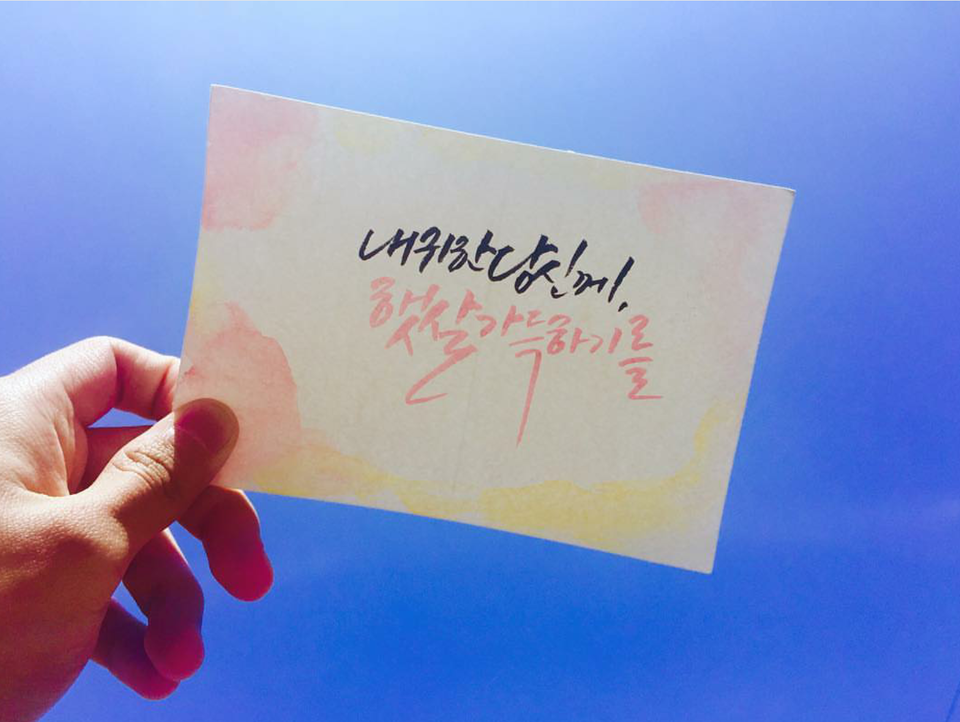 내귀한당신께,
햇살가득하기를